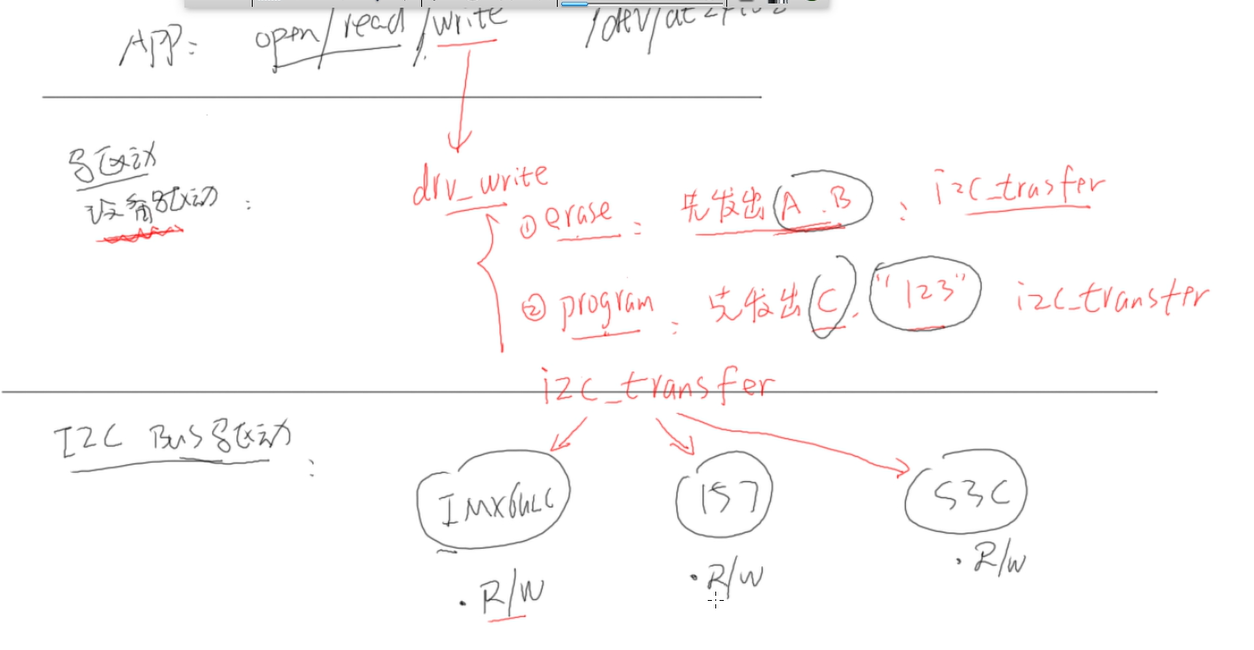 APP: open/read/write /dev/at24c02
驱动
设备驱动:
drv_write
①erase: 先发出A.B: i2c_trasfer
②program: 先发出C. "123" i2c_transfer
i2c_transfer
I2C Bus驱动:
IMX6ULL 157 S3C
.R/W .R/W .R/W